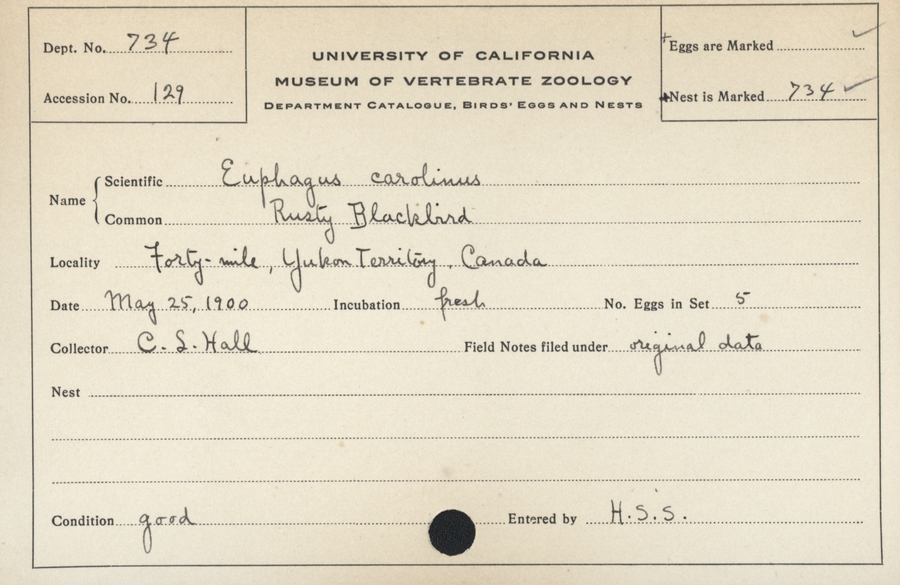 Dept. No. 734
Accession No. 129
UNIVERSITY OF CALIFORNIA
MUSEUM OF VERTEBRATE ZOOLOGY
DEPARTMENT CATALOGUE, BIRDS' EGGS AND NESTS
Eggs are Marked ✓
Nest is Marked 734 ✓
Name
Scientific Euphagus carolinus
Common Rusty Blackbird
Locality Forty-mile, Yukon Territory, Canada
Date May 25, 1900 Incubation fresh No. Eggs in Set 5
Collector C. L. Hall Field Notes filed under original data
Nest
Condition good Entered by H.S.S.